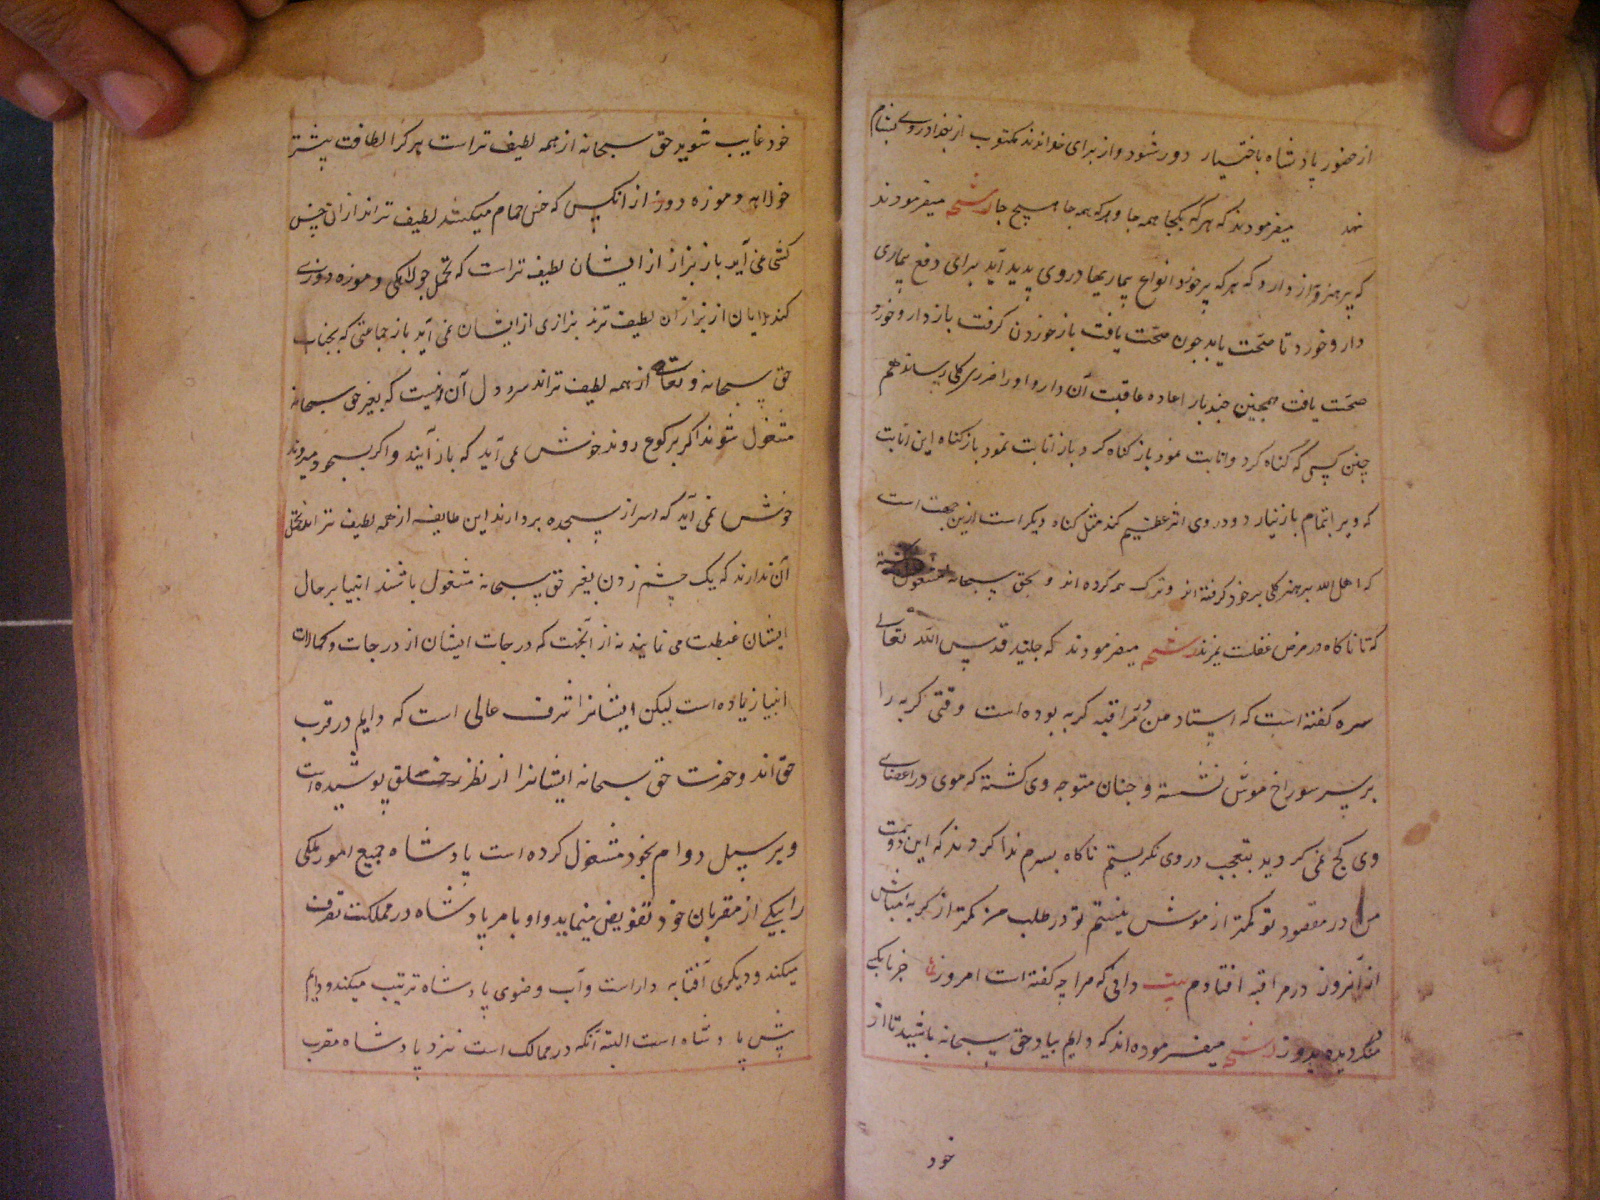 از حضور پادشاه باختیار دور شود و از برای خواندند مکتوب از بغداد روی بشام
نهد میفرمودند که هرکه یکجا همه جا و هرکه همه جا هیچ جا رشحه میفرمودند
که پرهیز و از دارد که هرکه پرخورد انواع بیماریها در وی پدید آید برای دفع بیماری
دارو خورد تا صحّت یابد چون صحّت یافت باز خوردن کرفت باز دارو خورد
صحّت یافت همچنین چند بار اعاده عاقبت آن دارو او را ضرری کلی رساند هم
چنین کسی که کناه کرد و انابت نمود باز کناه کرد باز انابت نمود باز کناه این انابت
که ویرا تمام باز نیارد و در وی اثر عظیم نکند مثل کناه دیکر است ازین جهت است
که اهل الله پرهیز کلی بر خود کرفته اند و ترک همه کرده اند و بحق سبحانه مشغول
که تا ناکاه در مرض غفلت نمیرند رشحه میفرمودند که جنید قدس الله تعالی
سره کفته است که استاد من در مراقبه کربه بوده است وقتی کربه را
بر سر سوراخ موش نشسته و چنان متوجه وی کشته که موی در اعضای
وی کج نمی کردید بتعجب در وی نکریستم ناکاه بسرم ندا کردند که ای دون همت
من در مقصود تو کمتر از موش نیستم تو در طلب من کمتر از کربه مباش
از آنروز در مراقبه افتادم بیت دانی که مرا چه کفته است امروز جز بایکی
منکر دیده بدوز رشحه میفرموده اند که دایم بیاد حق سبحانه باشید تا از
خود
خود غایب شوید حق سبحانه از همه لطیف تر است هرکرا لطافت بیشتر
جولاهه و موزه دوز از آنکس که خس حمام میکشد لطیف تراند از ان خس
کشی نمی آید باز بزاز از ایشان لطیف تر است که تحمل جولاهکی و موزه دوزی
کند ملایان از بزازان لطیف ترند بزازی از ایشان نمی آید باز جماعتی که بجناب
حق سبحانه و تعالی از همه لطیف تراند سر و دل آن نیست که بغیر حق سبحانه
مشغول شوند اکر برکوع روند خوش نمی آید که باز آیند و اکر بسجود میروند
خوش نمی آید که سر از سجده بردارند این طایفه از همه لطیف تراند تحمل
آن ندارند که یک چشم زدن بغیر حق سبحانه مشغول باشند انبیا بر حال
ایشان غبطت می نمایند نه از آنجهت که درجات ایشان از درجات و کمالات
انبیا زیاده است لیکن ایشانرا شرف عالی است که دایم در قرب
حق اند و حضرت حق سبحانه ایشانرا از نظر خلق پوشیده است
و بر سبیل دوام بخود مشغول کرده است پادشاه جمیع امور ملکی
را بیکی از مقربان خود تفویض مینماید و او بامر پادشاه در مملکت تصرف
میکند و دیکری آفتابه دار است و آب وضوی پادشاه ترتیب میکند و دایم
پیش پادشاه است البته آنکه در ممالک است نزد پادشاه مقرب